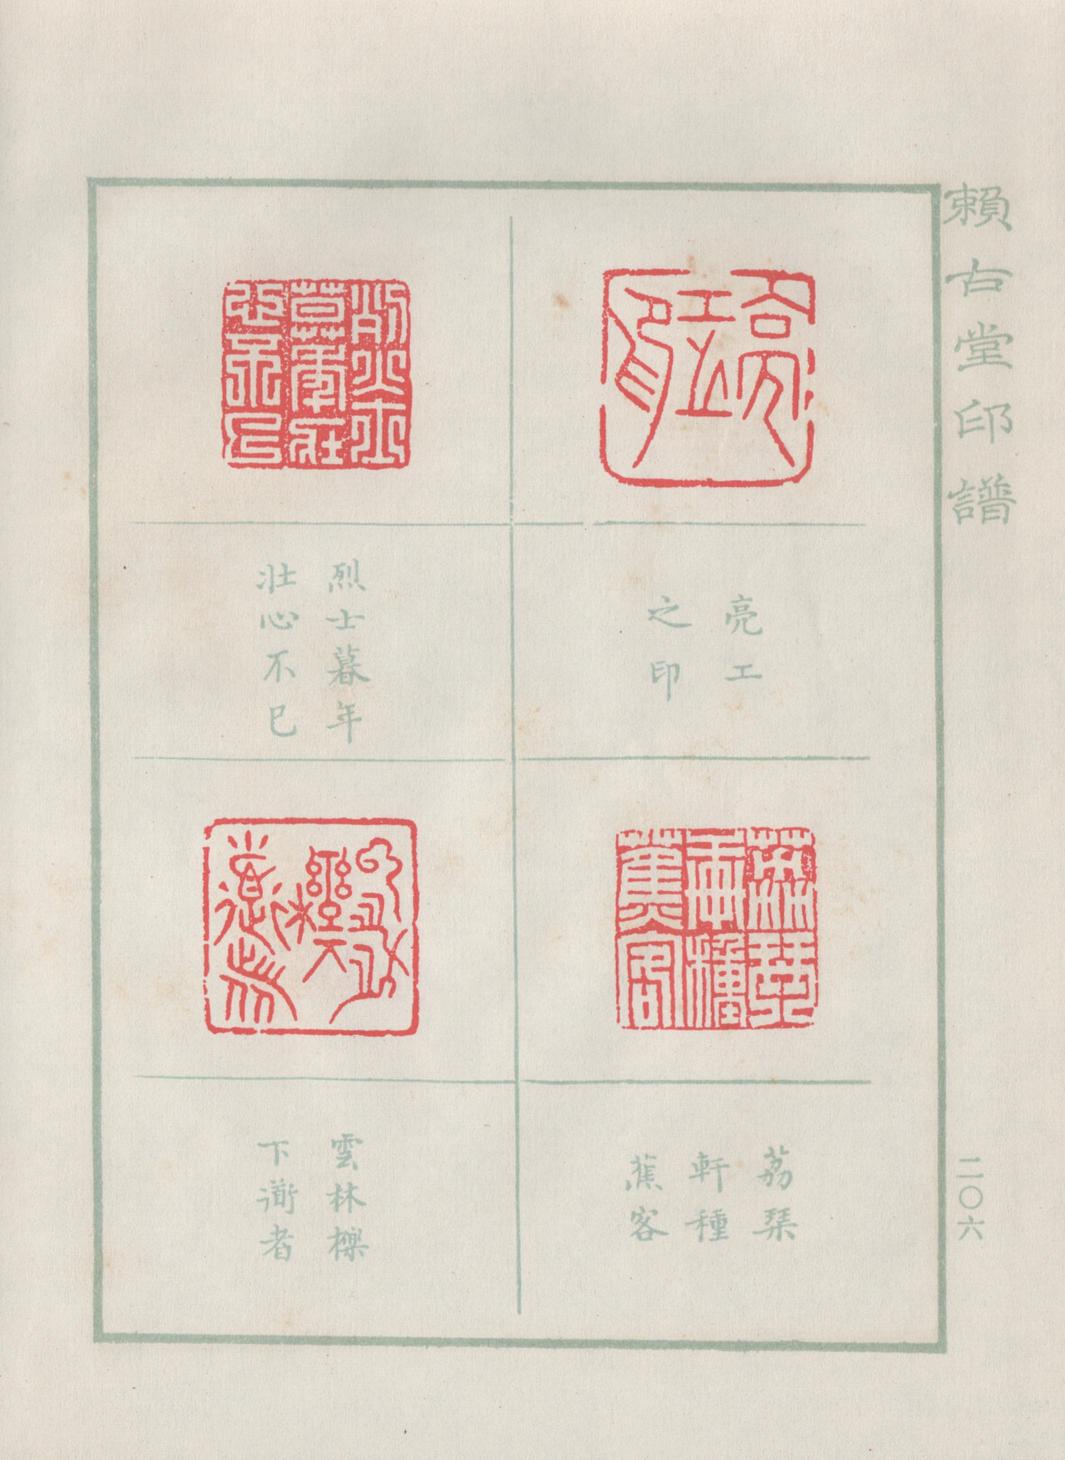 賴古堂印譜
亮工
之印
烈士暮年
壯心不已
荔琴
軒種
蕉客
雲林櫟
下衜者
二〇六